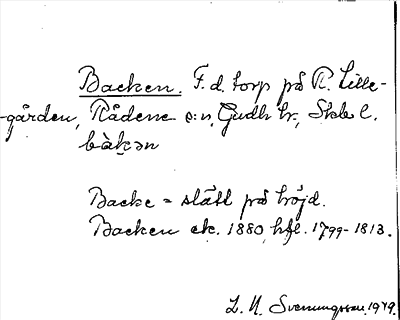 Backen. F. d. torp på R. Lille-
-gården, Rådene s:n, Gudh. hr., Skbl.
bàkən
Backe = slätt på höjd.
Backen ek. 1880, hfl. 1799-1813.
L. N. Svenungsson. 1949.